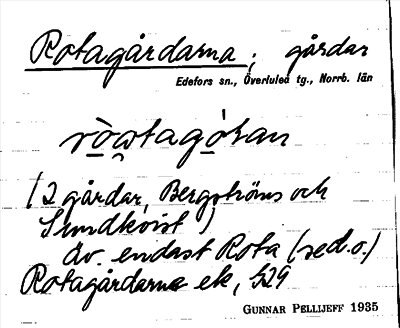 Rotagårdarna; gårdar
Edefors sn., Överluleå tg., Norrb. län
(2 gårdar, Bergströms och
Sundkvist)
Äv. endast Rota (se d.o.)
Rotagårdarna ek, 529
GUNNAR PELLIJEFF 1935